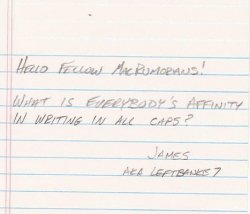 HELLO FELLOW MACRUMORANS!
WHAT IS EVERYBODY'S AFFINITY
IN WRITING IN ALL CAPS?
JAMES
AKA LEFTBANKE7